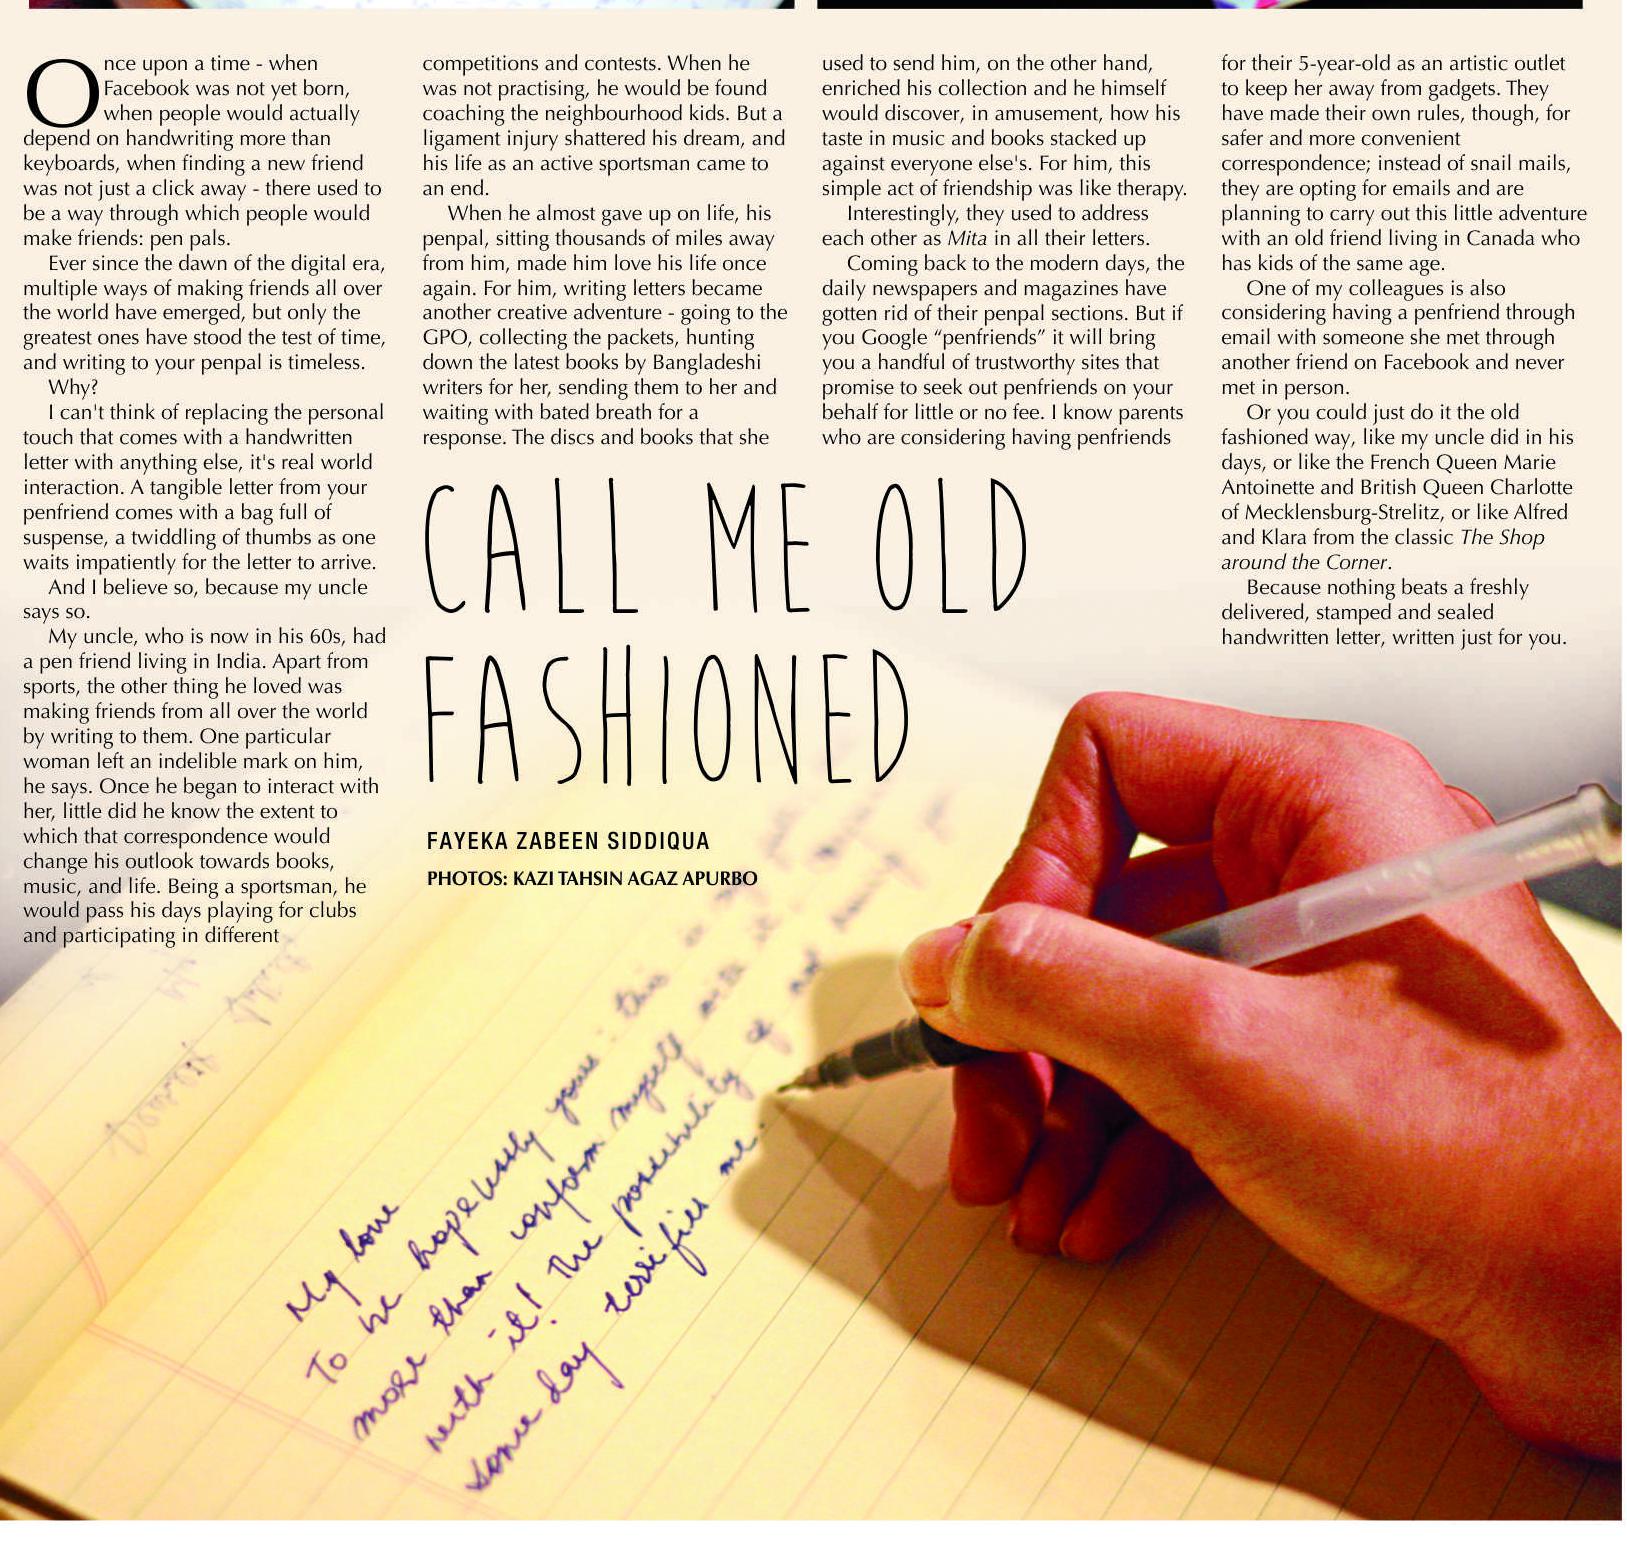 Once upon a time - when
Facebook was not yet born,
when people would actually
depend on handwriting more than
keyboards, when finding a new friend
was not just a click away - there used to
be a way through which people would
make friends: pen pals.
Ever since the dawn of the digital era,
multiple ways of making friends all over
the world have emerged, but only the
greatest ones have stood the test of time,
and writing to your penpal is timeless.
Why?
I can't think of replacing the personal
touch that comes with a handwritten
letter with anything else, it's real world
interaction. A tangible letter from your
penfriend comes with a bag full of
suspense, a twiddling of thumbs as one
waits impatiently for the letter to arrive.
And I believe so, because my uncle
says so.
My uncle, who is now in his 60s, had
a pen friend living in India. Apart from
sports, the other thing he loved was
making friends from all over the world
by writing to them. One particular
woman left an indelible mark on him,
he says. Once he began to interact with
her, little did he know the extent to
which that correspondence would
change his outlook towards books,
music, and life. Being a sportsman, he
would pass his days playing for clubs
and participating in different
competitions and contests. When he
was not practising, he would be found
coaching the neighbourhood kids. But a
ligament injury shattered his dream, and
his life as an active sportsman came to
an end.
When he almost gave up on life, his
penpal, sitting thousands of miles away
from him, made him love his life once
again. For him, writing letters became
another creative adventure - going to the
GPO, collecting the packets, hunting
down the latest books by Bangladeshi
writers for her, sending them to her and
waiting with bated breath for a
response. The discs and books that she
used to send him, on the other hand,
enriched his collection and he himself
would discover, in amusement, how his
taste in music and books stacked up
against everyone else's. For him, this
simple act of friendship was like therapy.
Interestingly, they used to address
each other as Mita in all their letters.
Coming back to the modern days, the
daily newspapers and magazines have
gotten rid of their penpal sections. But if
you Google “penfriends” it will bring
you a handful of trustworthy sites that
promise to seek out penfriends on your
behalf for little or no fee. I know parents
who are considering having penfriends
for their 5-year-old as an artistic outlet
to keep her away from gadgets. They
have made their own rules, though, for
safer and more convenient
correspondence; instead of snail mails,
they are opting for emails and are
planning to carry out this little adventure
with an old friend living in Canada who
has kids of the same age.
One of my colleagues is also
considering having a penfriend through
email with someone she met through
another friend on Facebook and never
met in person.
Or you could just do it the old
fashioned way, like my uncle did in his
days, or like the French Queen Marie
Antoinette and British Queen Charlotte
of Mecklensburg-Strelitz, or like Alfred
and Klara from the classic The Shop
around the Corner.
Because nothing beats a freshly
delivered, stamped and sealed
handwritten letter, written just for you.
CALL ME OLD
FASHIONED
FAYEKA ZABEEN SIDDIQUA
PHOTOS: KAZI TAHSIN AGAZ APURBO
My love
To be hopelessly yours: this is
more than conform myself with it.
with it! The possibility of not
some day terrifies me.